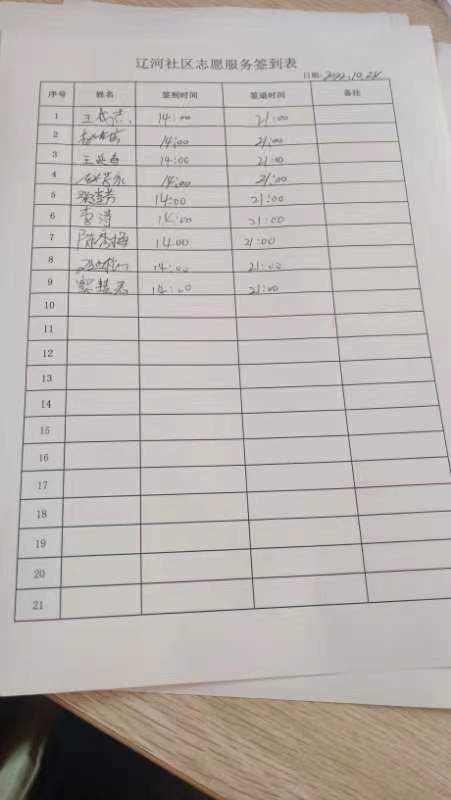 辽河社区志愿服务签到表
日期: 2022.10.24
序号 姓名 签到时间 签退时间 备注
1 14:00 21:00
2 14:00 21:00
3 14:00 21:00
4 14:00 21:00
5 14:00 21:00
6 14:00 21:00
7 14:00 21:00
8 14:00 21:00
9 14:00 21:00
10
11
12
13
14
15
16
17
18
19
20
21